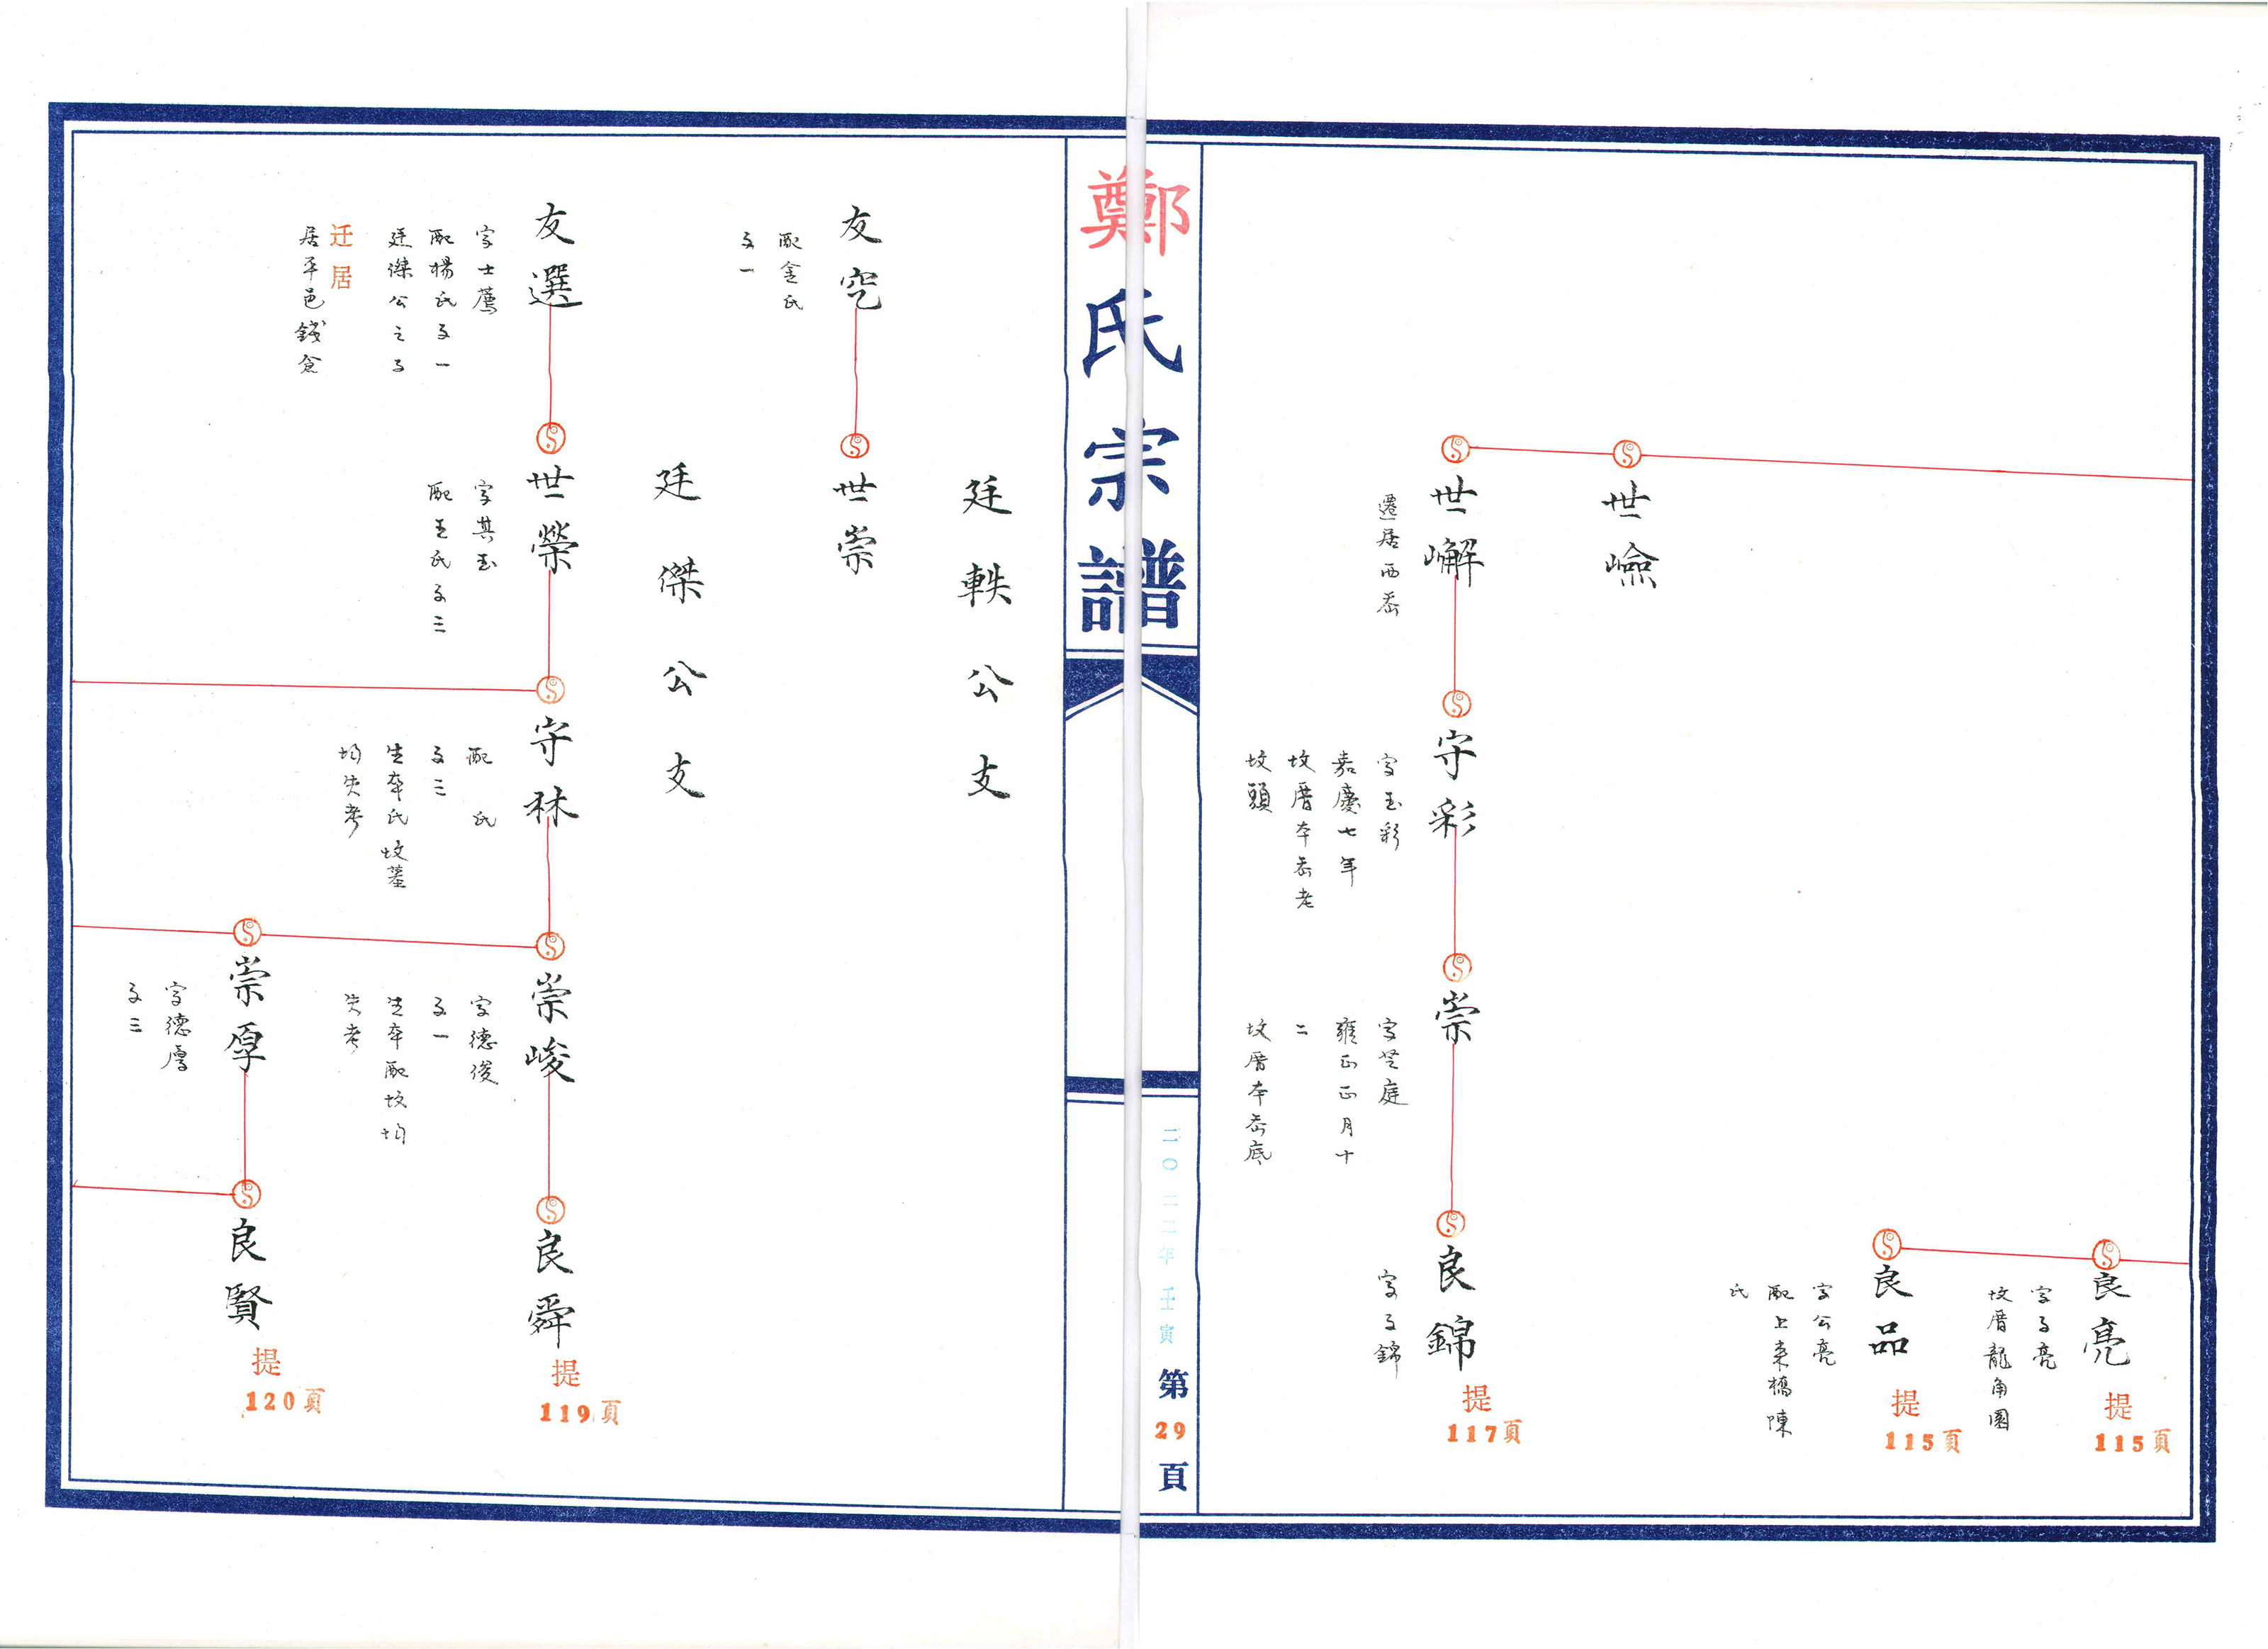 良亮
字子亮
坟厝龍角園
提
115頁
良品
字公亮
配上來橋陳
氏
提
115頁
世嶮
世嶰
遷居西岙
守彩
字玉彩
嘉慶七年
坟厝本岙老
坟頭
崇
字芝庭
雍正正月十
二
坟厝本岙底
良錦
字子錦
提
117頁
鄭氏宗譜
二〇二二年壬寅
第29頁
廷軼公支
友
配金氏
子一
世崇
廷傑公支
友選
字士薦
配楊氏子一
廷傑公之子
迁居
居平邑錢倉
世榮
字其玉
配王氏子三
守林
配 氏
子三
生卒氏坟墓
均失考
崇峻
字德俊
子一
生卒配坟均
失考
良舜
提
119頁
崇厚
字德厚
子三
良賢
提
120頁